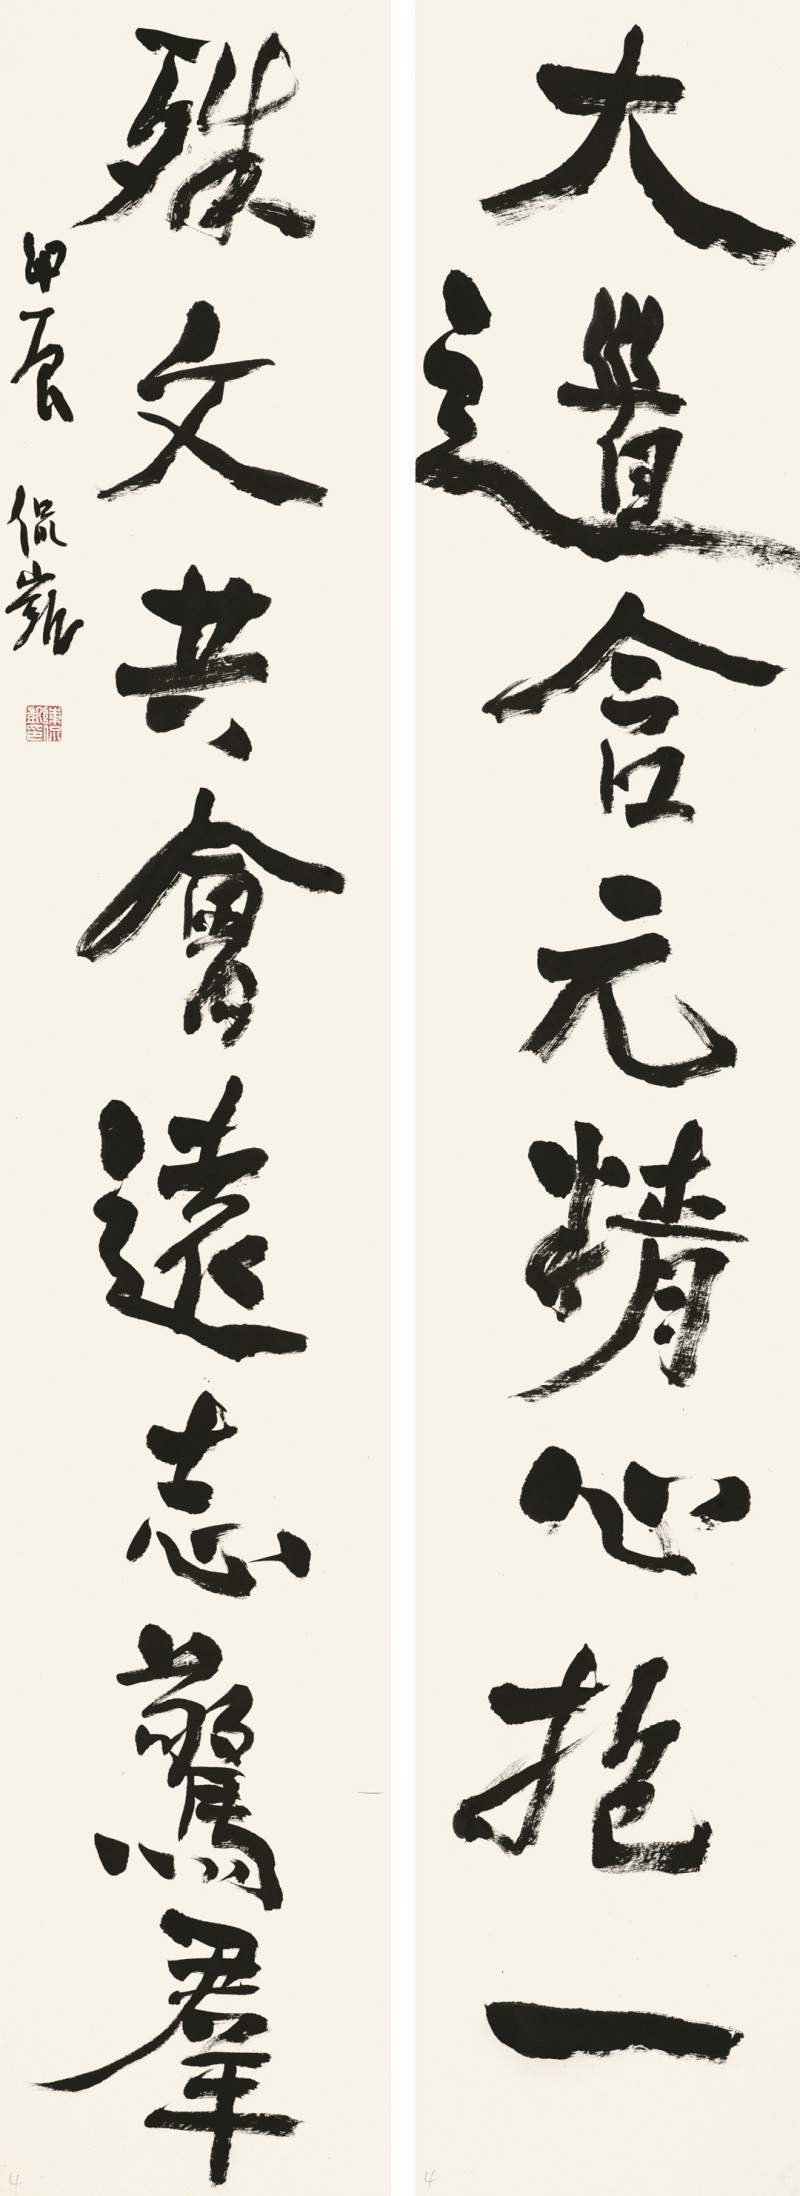 大道含元精心抱一
殊文共會遠志驚羣
甲辰 侃凝
4
4